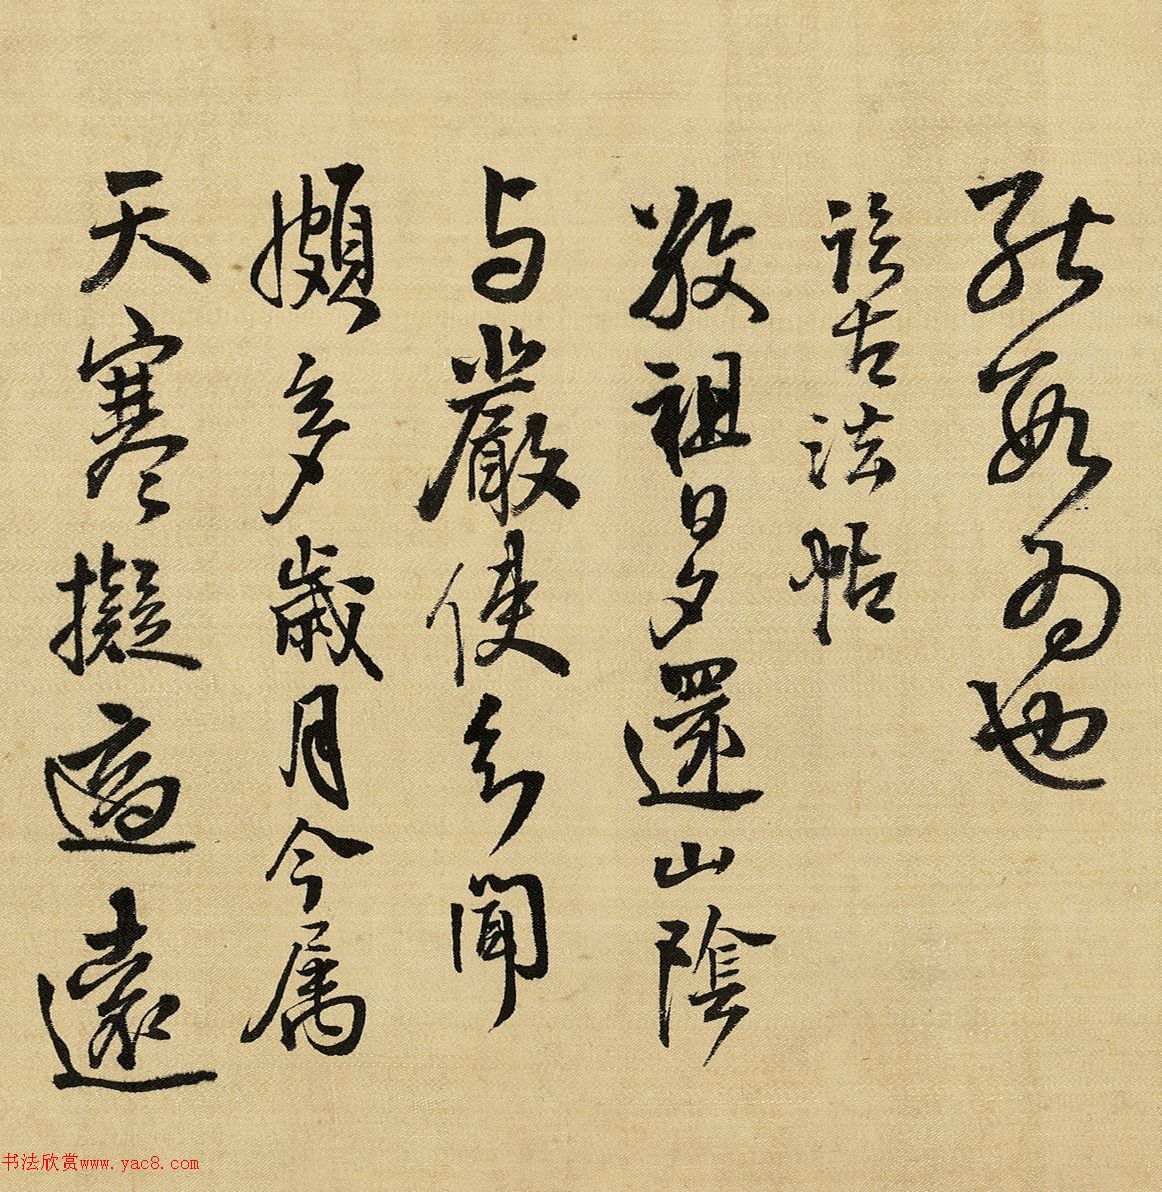 耽耽为也
临古法帖
散祖日夕還山陰
与嚴使君聞
頗多歲月今属
天寒擬適遠
书法欣赏www.yac8.com